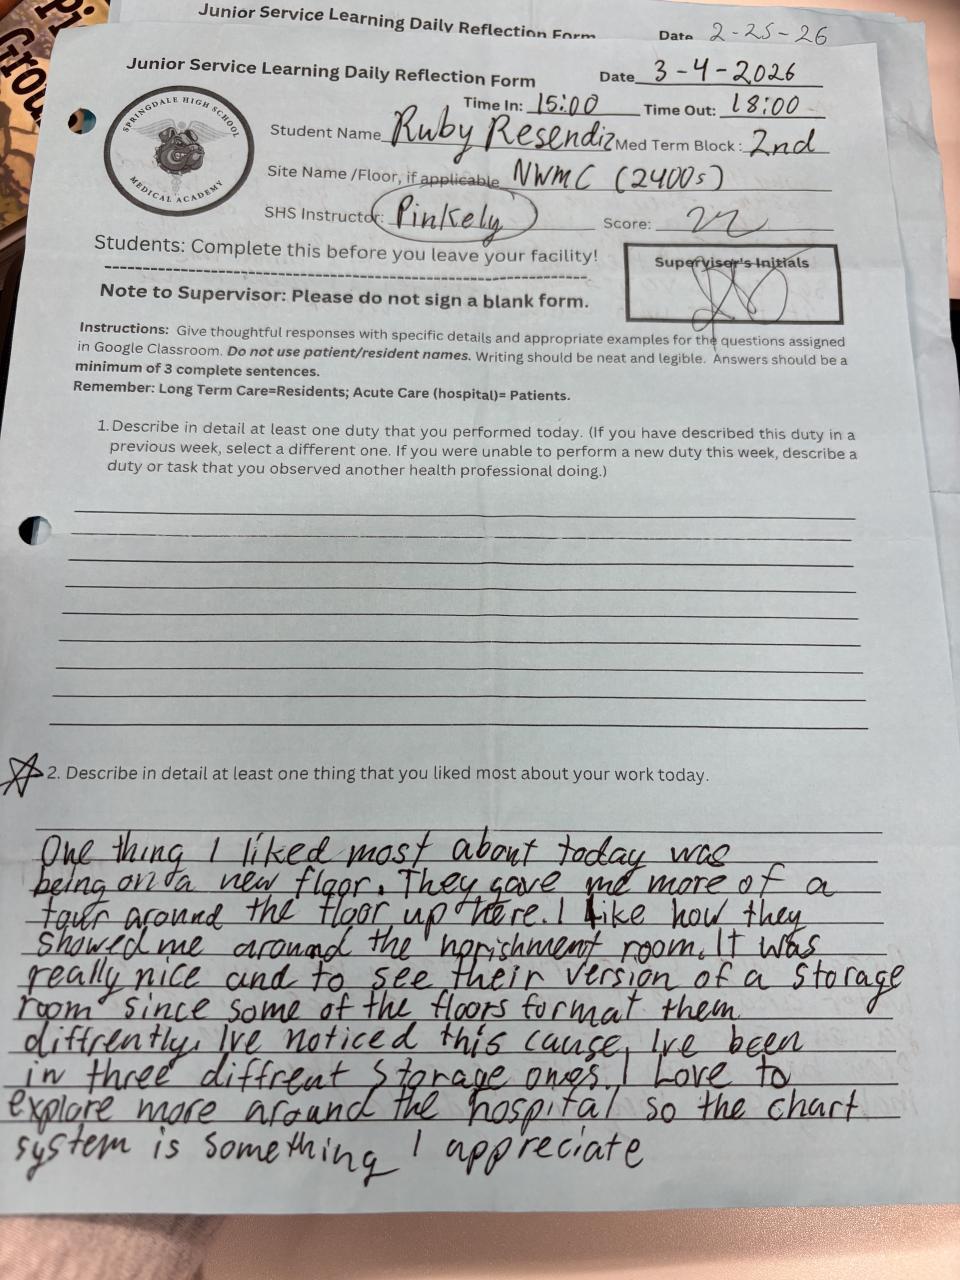 Pi
Grou
Junior Service Learning Daily Reflection Form Date 2-25-26
Junior Service Learning Daily Reflection Form Date 3-4-2026
Time In: 15:00 Time Out: 18:00
SPRINGDALE HIGH SCHOOL
MEDICAL ACADEMY
Student Name Ruby Resendiz Med Term Block: 2nd
Site Name /Floor, if applicable NWMC (2400s)
SHS Instructor: Pinkely Score: 22
Students: Complete this before you leave your facility!
Supervisor's Initials
Note to Supervisor: Please do not sign a blank form.
Instructions: Give thoughtful responses with specific details and appropriate examples for the questions assigned
in Google Classroom. Do not use patient/resident names. Writing should be neat and legible. Answers should be a
minimum of 3 complete sentences.
Remember: Long Term Care=Residents; Acute Care (hospital)= Patients.
1. Describe in detail at least one duty that you performed today. (If you have described this duty in a
previous week, select a different one. If you were unable to perform a new duty this week, describe a
duty or task that you observed another health professional doing.)
2. Describe in detail at least one thing that you liked most about your work today.
One thing I liked most about today was
being on a new floor. They gave me more of a
tour around the floor up here. I like how they
showed me around the norishment room. It was
really nice and to see their version of a storage
room since some of the floors format them
diffrently. Ive noticed this cause, Ive been
in three diffrent storage ones. I Love to
explore more around the hospital so the chart
system is something I appreciate